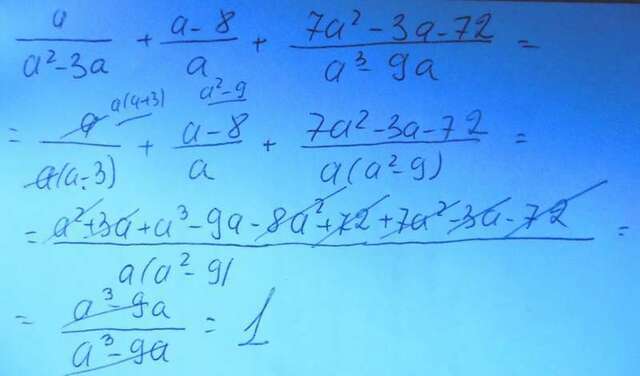 a/(a²-3a) + (a-8)/a + (7a²-3a-72)/(a³-9a) =
= a/(a(a-3)) ^{a(a+3)} + (a-8)/a ^{a²-9} + (7a²-3a-72)/(a(a²-9)) =
= (a²+3a+a³-9a-8a²+72+7a²-3a-72)/(a(a²-9)) =
= (a³-9a)/(a³-9a) = 1